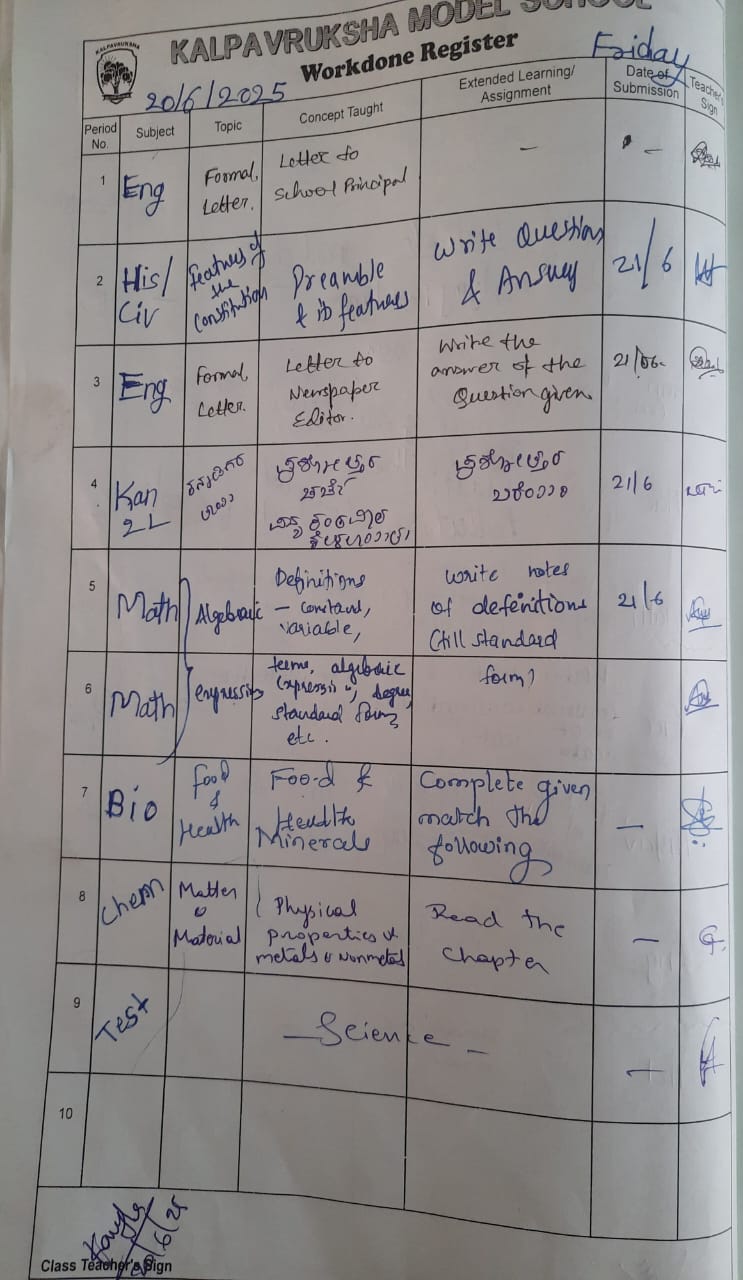 KALPAVRUKSHA
KALPAVRUKSHA MODEL SCHOOL
Workdone Register
20/6/2025
Friday
Period No.
Subject
Topic
Concept Taught
Extended Learning/
Assignment
Date of
Submission
Teacher's
Sign
1
Eng
Formal
Letter.
Letter to
School Principal
–
–
2
His/
Civ
Features of
the
Constitution
Preamble
& its features
Write Question
& Answer
21/6
3
Eng
Formal
Letter.
Letter to
Newspaper
Editor.
Write the
answer of the
Question given
21/06.
4
Kan
2L
21/6
5
Math
Algebraic
Definitions
– constant,
variable,
Write notes
of defenitions
(till standard
21/6
6
Math
expressions
terms, algebraic
expression, degree,
standard form,
etc.
form)
7
Bio
Food
&
Health
Food &
Health
Minerals
Complete given
match the
following
–
8
Chem
Matter
&
Material
Physical
properties of
metals & Nonmetals
Read the
Chapter
–
9
Test
– Science –
–
10
20/6/25
Class Teacher's Sign